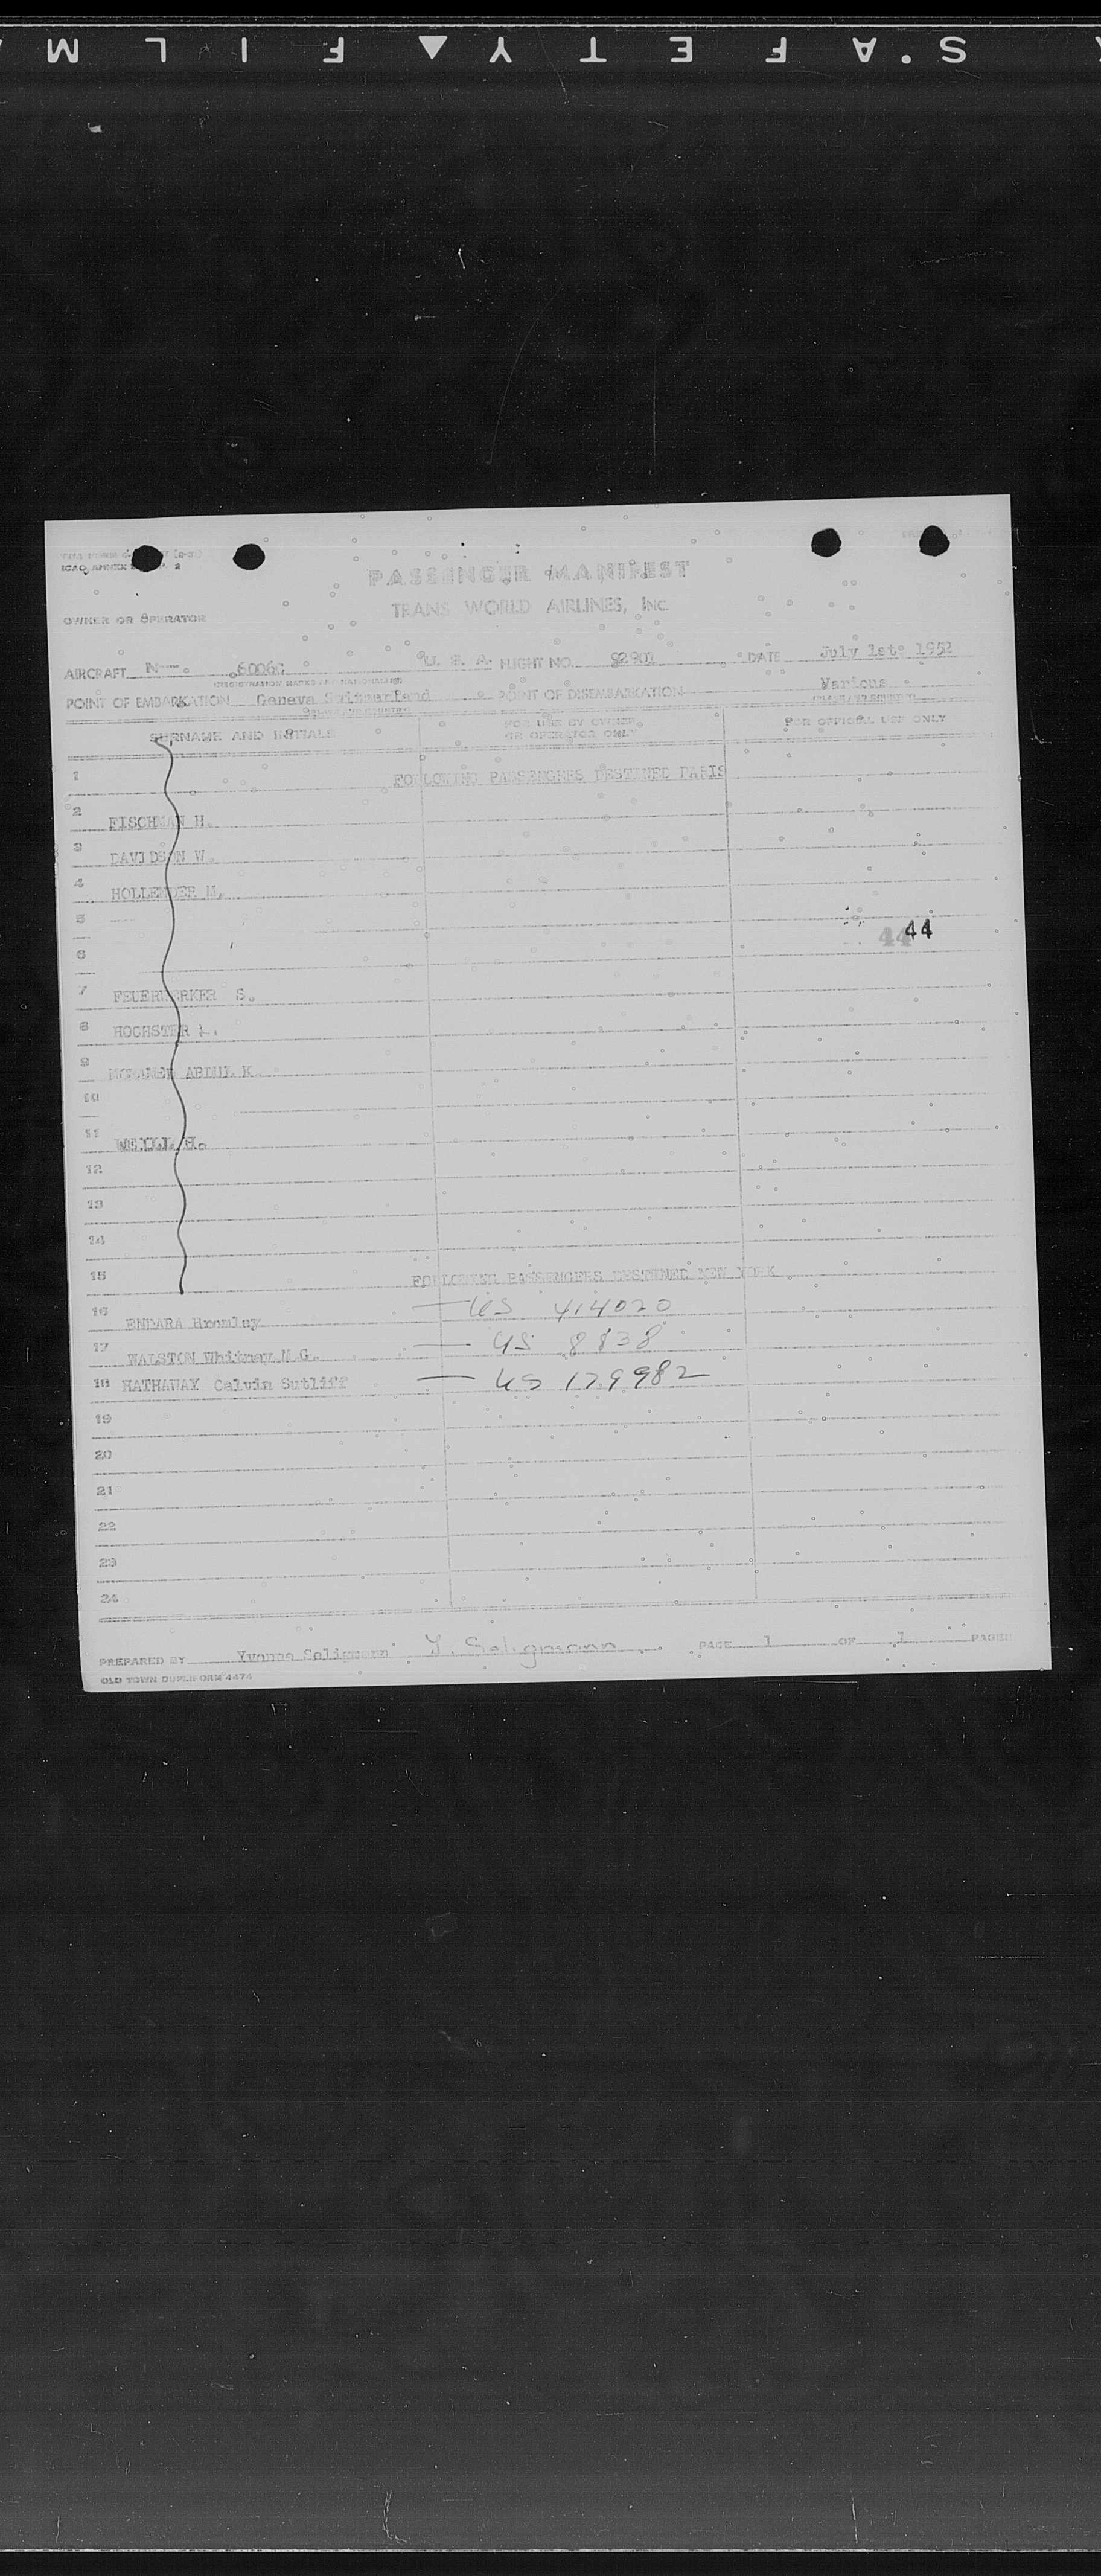 SAFETY FILM
ICAO ANNEX 2
PASSENGER MANIFEST
TRANS WORLD AIRLINES, Inc.
OWNER OR OPERATOR
AIRCRAFT N U. S. A. FLIGHT NO. DATE July 1st 1952
(REGISTRATION MARKS AND NATIONALITY)
POINT OF EMBARKATION Geneva Switzerland POINT OF DISEMBARKATION Various
SURNAME AND INITIALS FOR USE BY OWNER OR OPERATOR ONLY FOR OFFICIAL USE ONLY
1 FOLLOWING PASSENGERS DESTINED PARIS
2 FISCHMAN H.
3 DAVIDSON W.
4 HOLLENDER M.
5
44 44
6
7 FEUERWERKER S.
8 HOCHSTER L.
9 MOHAMED ABDUL K
10
11 WEILL H.
12
13
14
15 FOLLOWING PASSENGERS DESTINED NEW YORK
16 ENDARA — US 414020
17 WALSTON Whitney M.G. — US 8838
18 HATHAWAY Calvin Sutliff — US 129982
19
20
21
22
23
24
PREPARED BY Yvonne Seligmann Y. Seligmann PAGE 1 OF 1 PAGES
OLD TOWN DUPLIFORM 4474